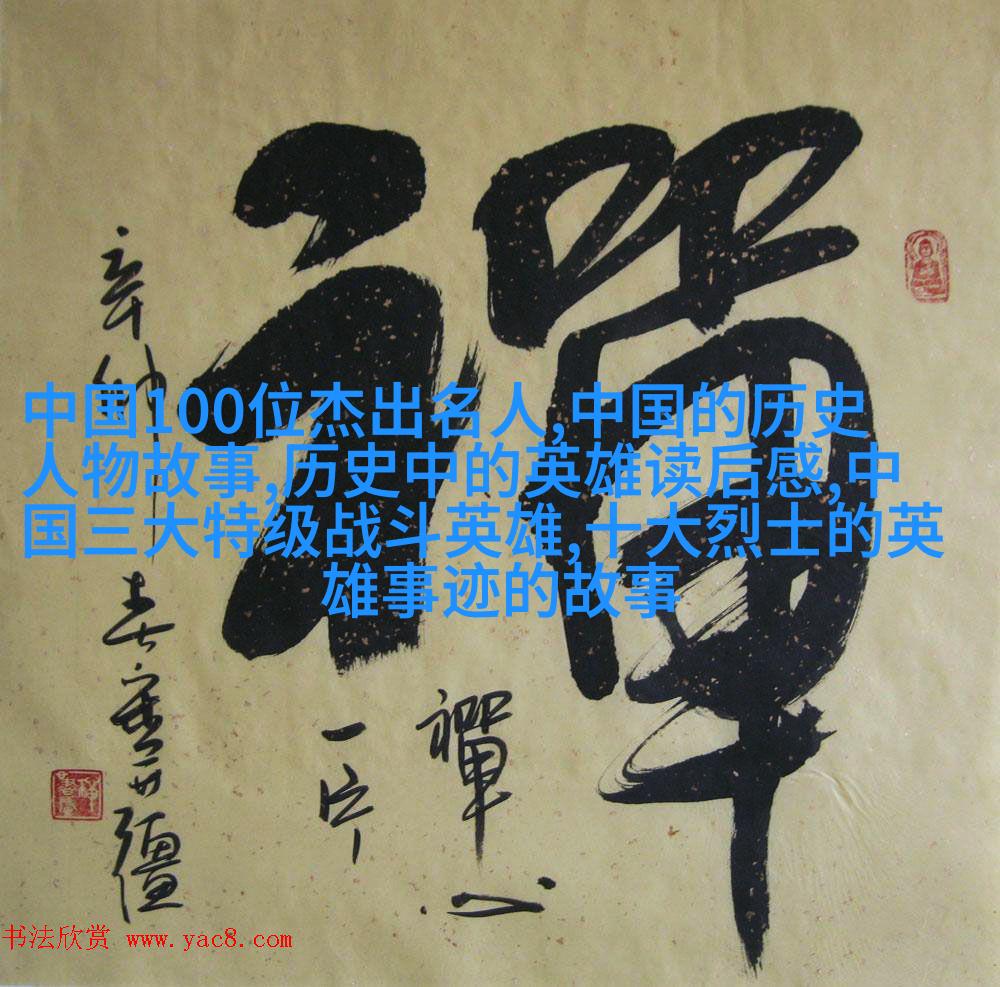 禪
禪心
一片
中国100位杰出名人,中国的历史
人物故事,历史中的英雄读后感,中
国三大特级战斗英雄,十大烈士的英
雄事迹的故事
书法欣赏 www.yac8.com